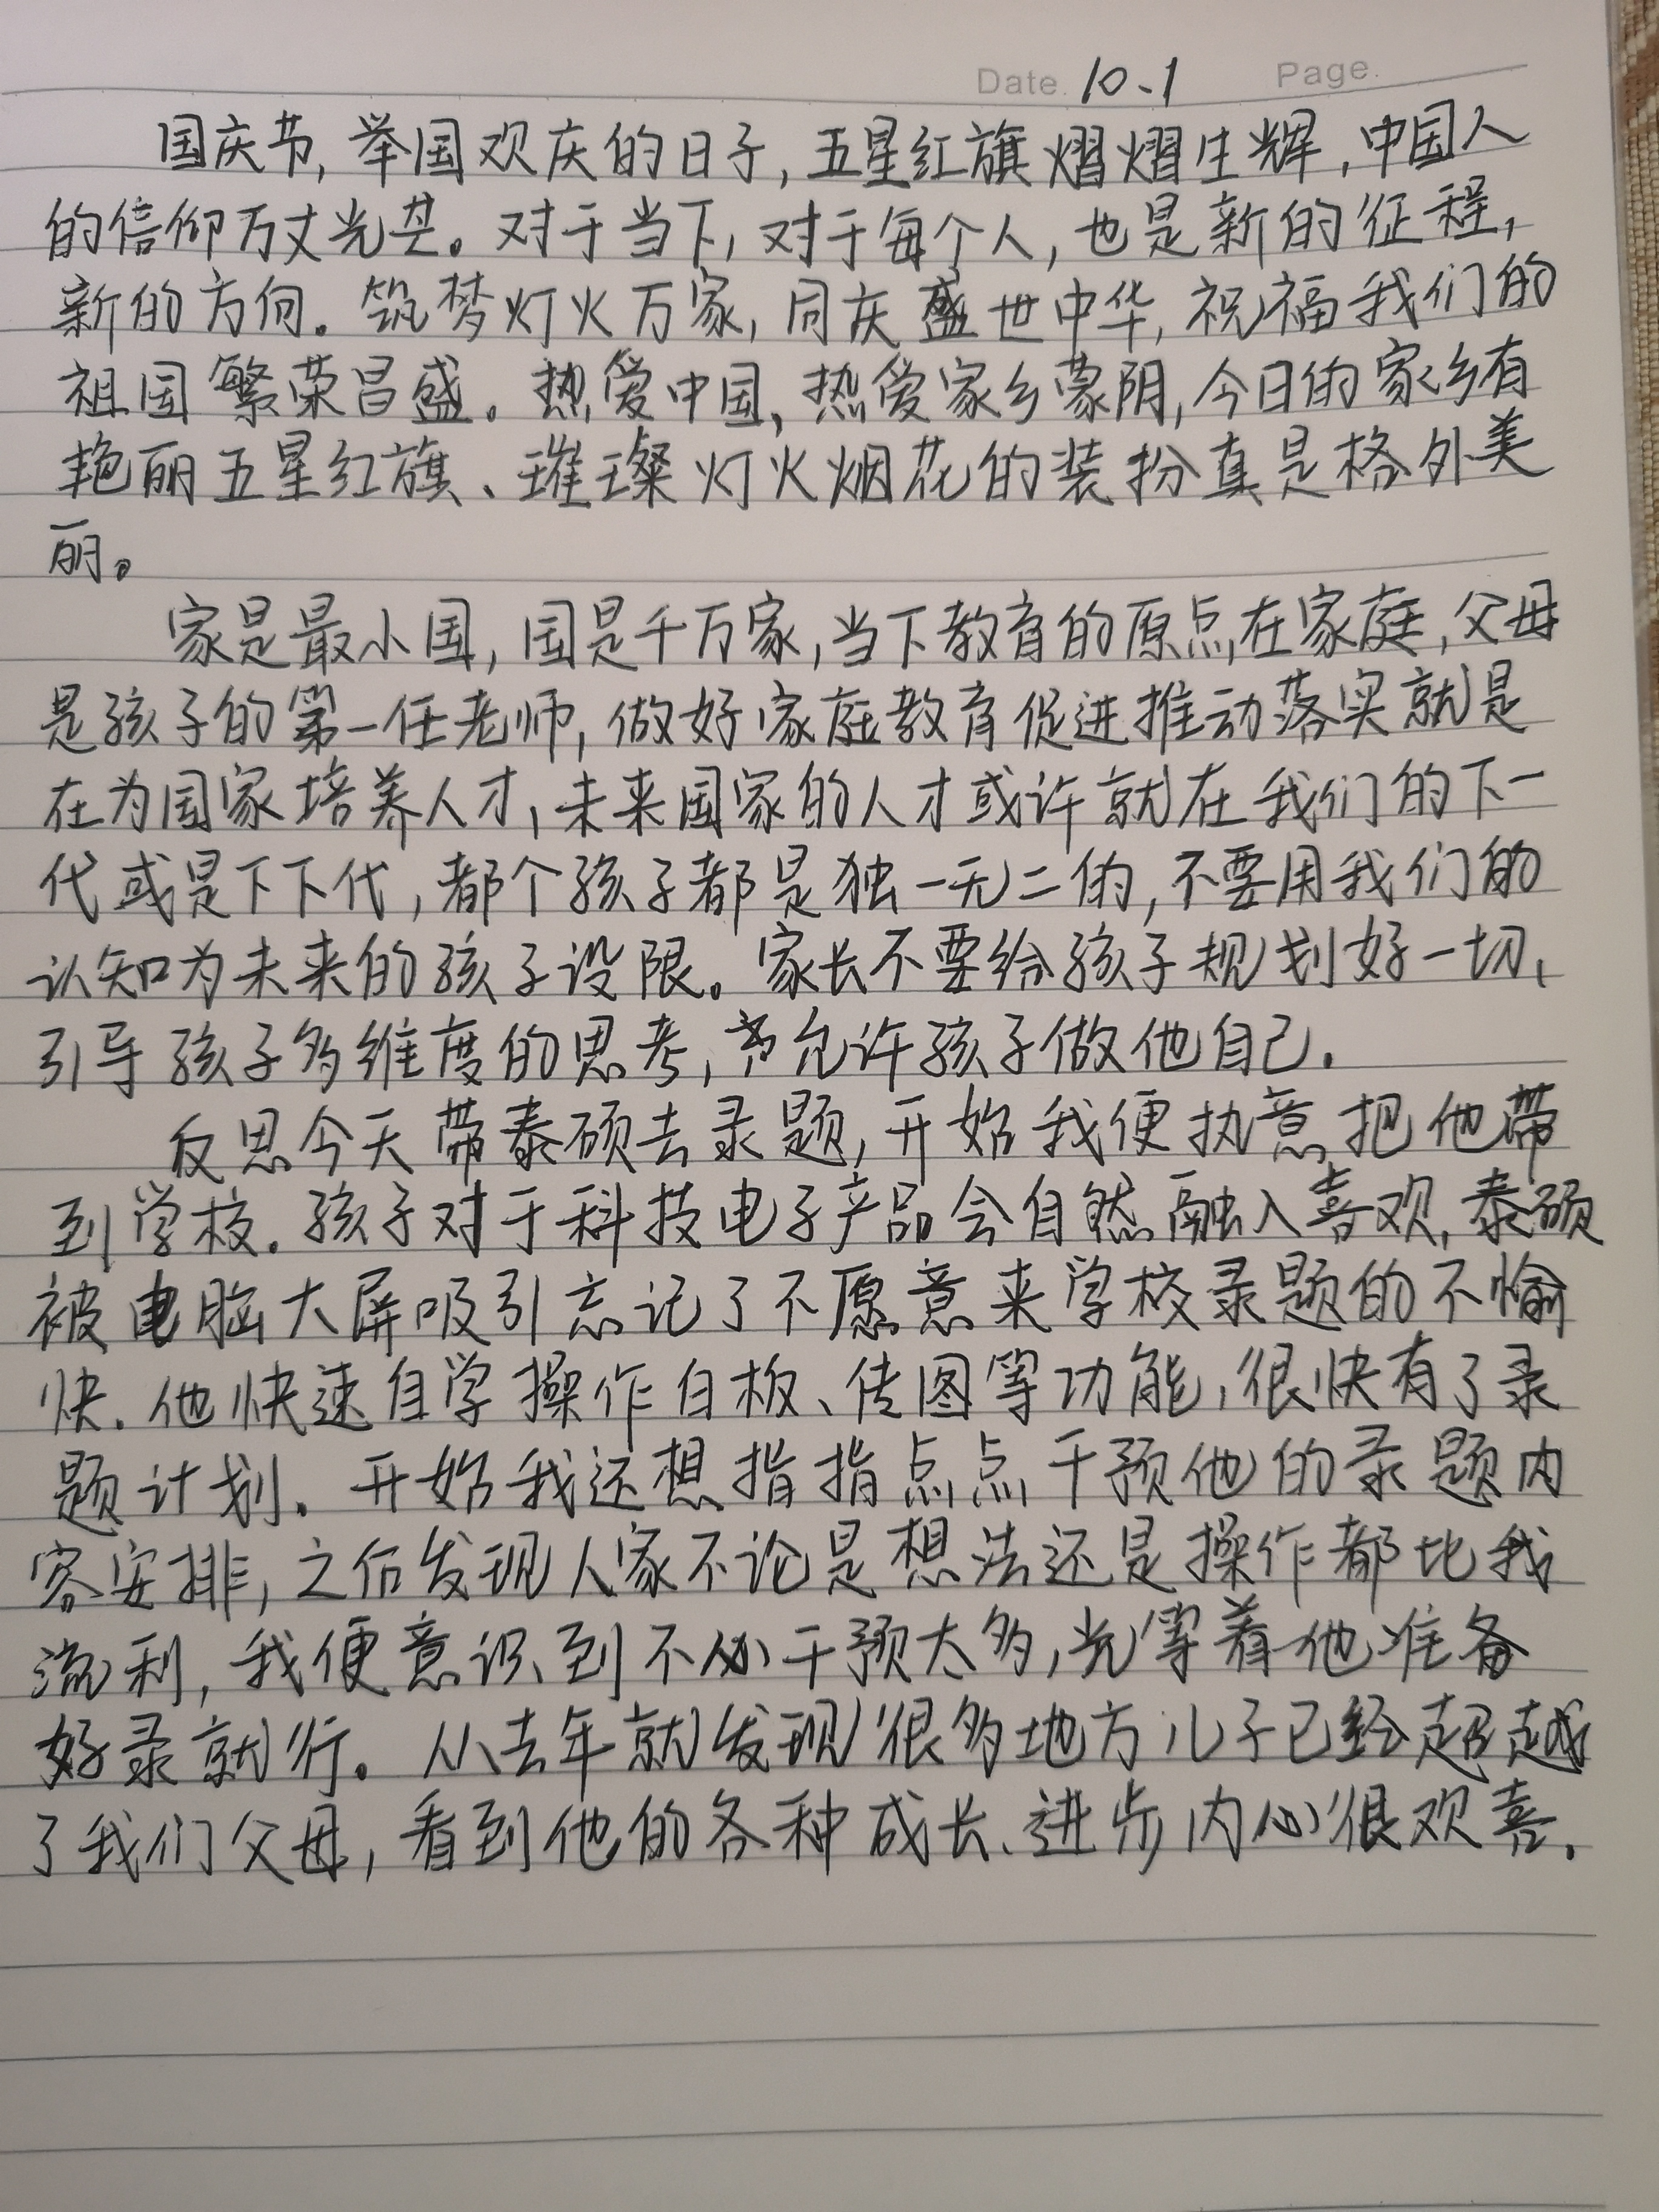 Date. 10.1 Page.
国庆节,举国欢庆的日子,五星红旗熠熠生辉,中国人
的信仰万丈光芒。对于当下,对于每个人,也是新的征程,
新的方向。筑梦灯火万家,同庆盛世中华,祝福我们的
祖国繁荣昌盛。热爱中国,热爱家乡蒙阴,今日的家乡有
艳丽五星红旗、璀璨灯火烟花的装扮真是格外美
丽。
家是最小国,国是千万家,当下教育的原点在家庭,父母
是孩子的第一任老师,做好家庭教育促进推动落实就是
在为国家培养人才,未来国家的人才或许就在我们的下一
代或是下下代,都个孩子都是独一无二的,不要用我们的
认知为未来的孩子设限。家长不要给孩子规划好一切、
引导孩子多维度的思考,允许孩子做他自己.
反思今天带泰硕去录题,开始我便执意把他带
到学校.孩子对于科技电子产品会自然融入喜欢,泰硕
被电脑大屏吸引忘记了不愿意来学校录题的不愉
快.他快速自学操作白板、传图等功能,很快有了录
题计划.开始我还想指指点点干预他的录题内
容安排,之后发现人家不论是想法还是操作都比我
流利,我便意识到不必干预太多,先等着他准备
好录就行。从去年就发现很多地方儿子已经超越
了我们父母,看到他的各种成长、进步内心很欢喜.